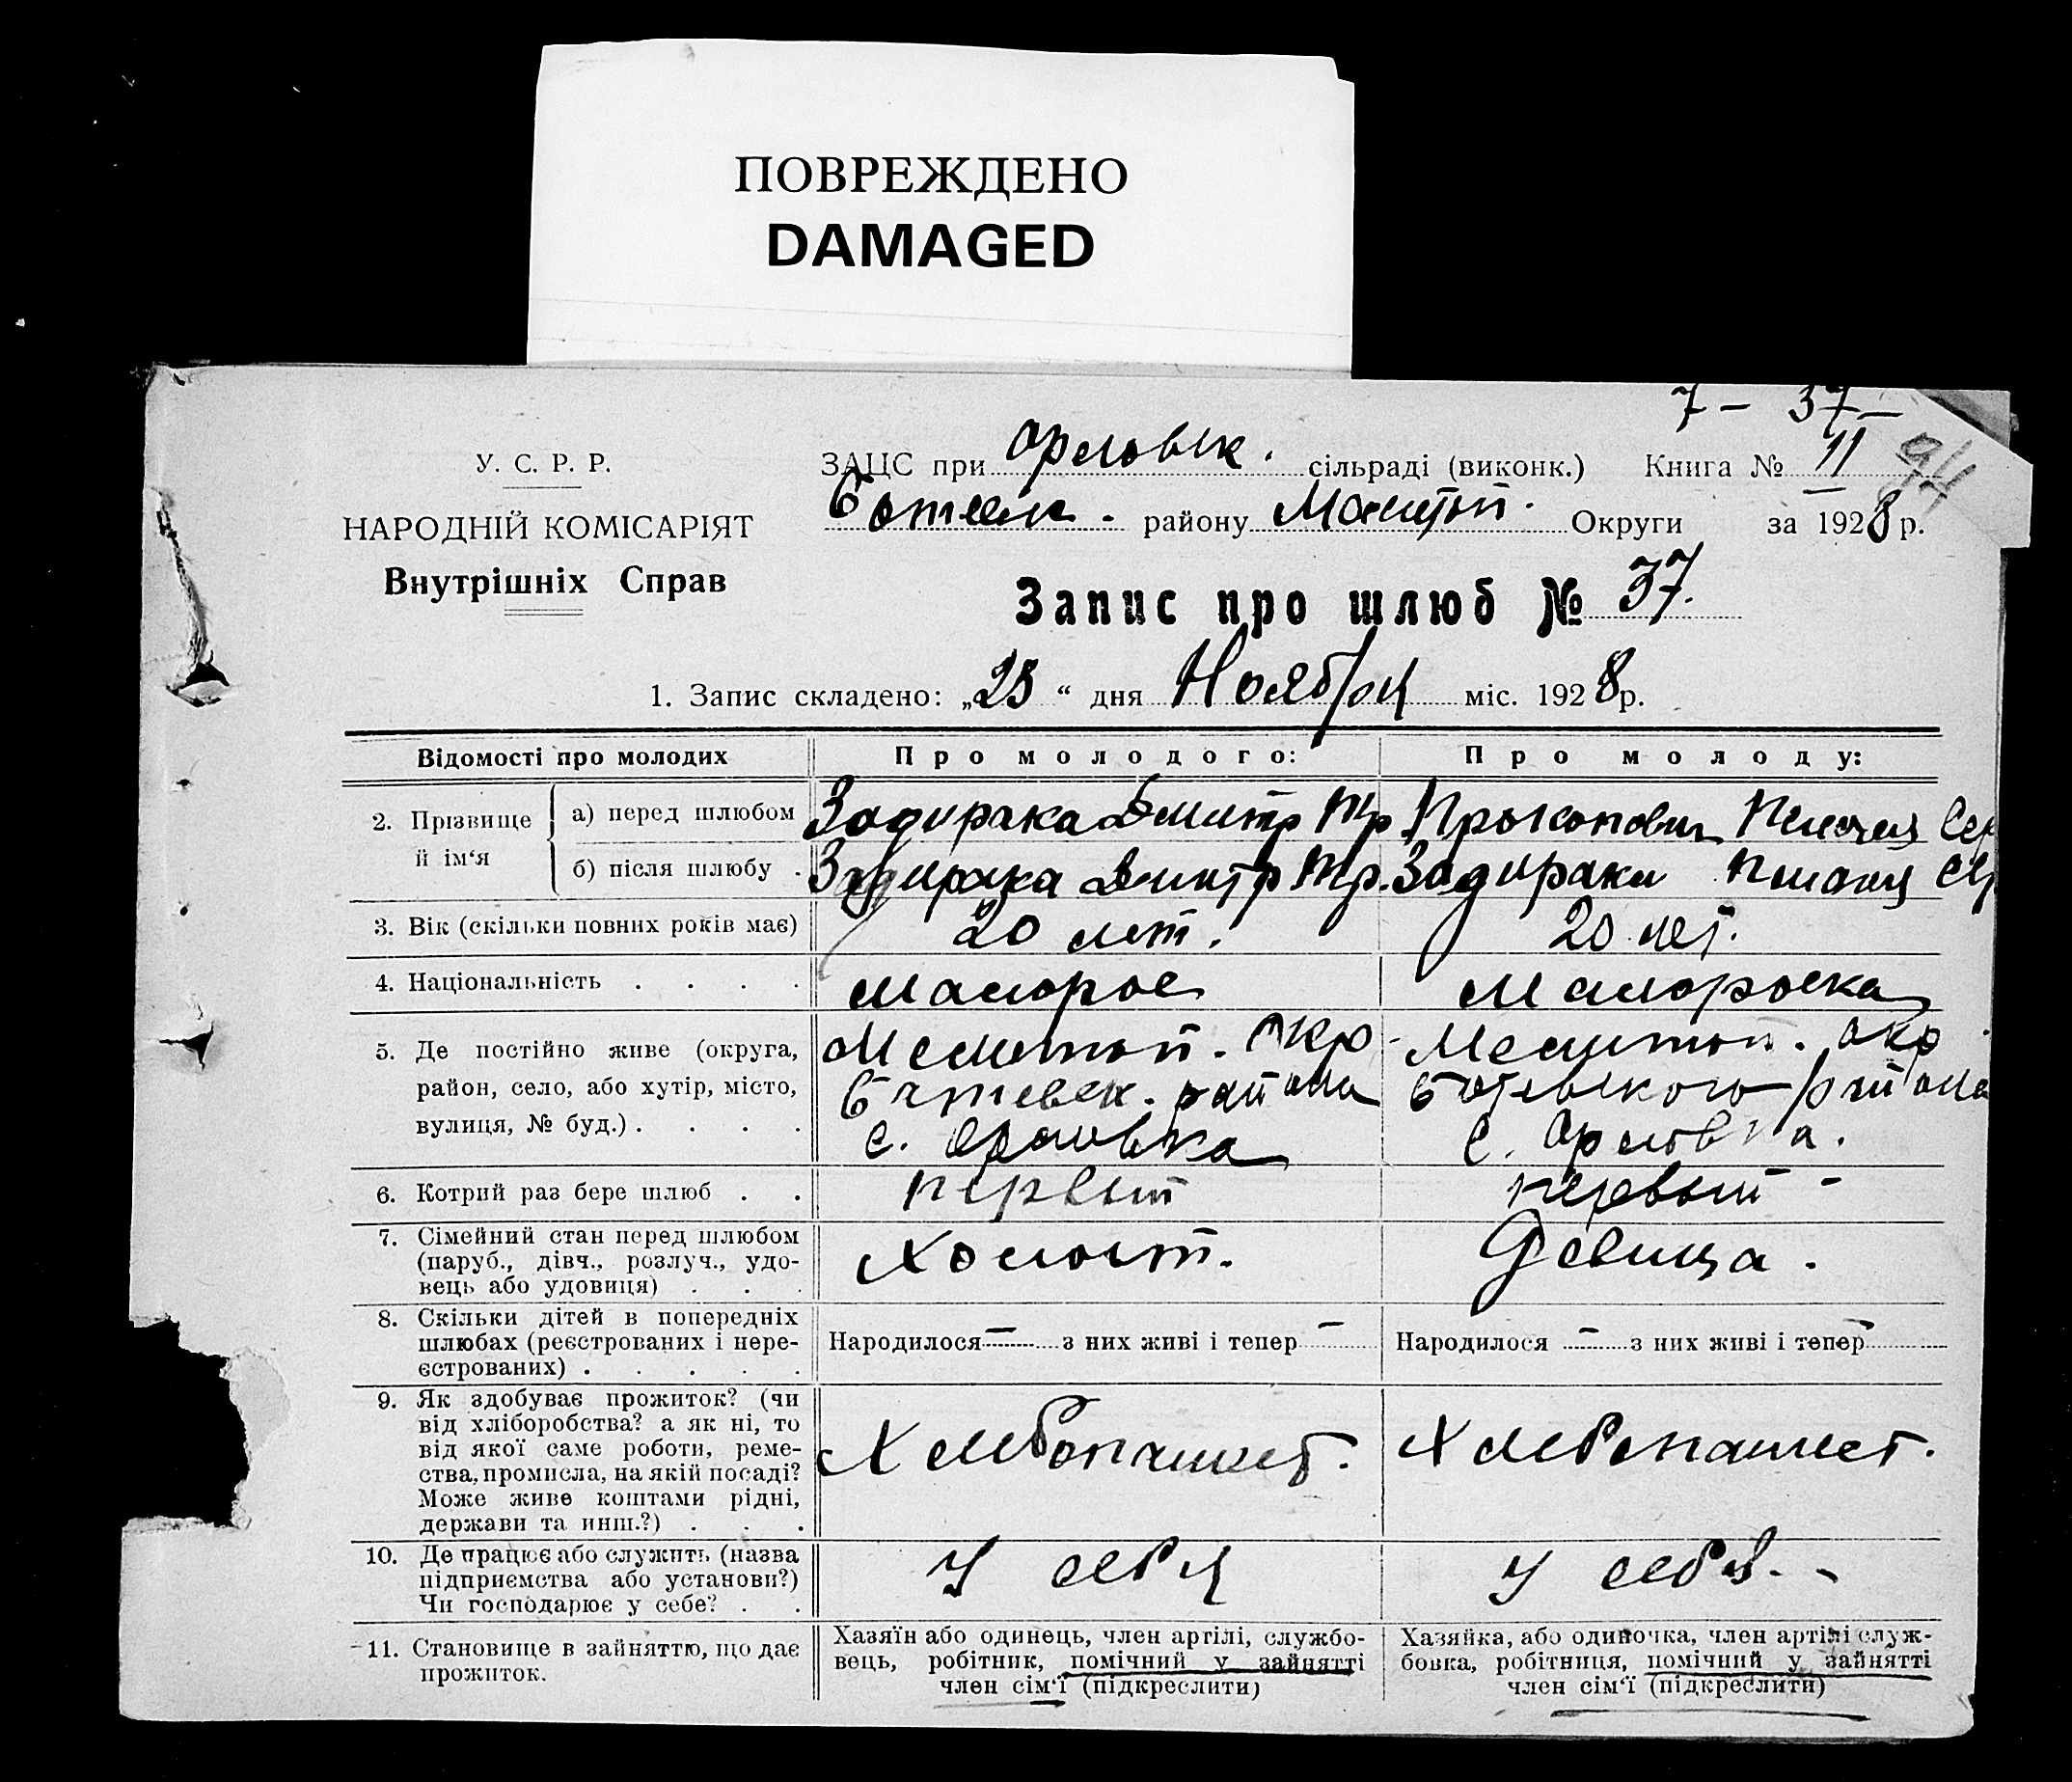 ПОВРЕЖДЕНО
DAMAGED
7 – 37 –
У. С. Р. Р.
НАРОДНІЙ КОМІСАРІЯТ
Внутрішніх Справ
ЗАЦС при Орловск. сільраді (виконк.) Книга № 11
району Округи за 1928 р.
Запис про шлюб № 37.
1. Запис складено: „25“ дня Ноября міс. 1928 р.
Відомості про молодих Про молодого: Про молоду:
2. Прізвище й ім‘я
а) перед шлюбом Задирака Дмитр Тр Прокопович
б) після шлюбу . Задирака Дмитр Тр. Задирака
3. Вік (скільки повних років має) 20 лет. 20 лет.
4. Національність . . . . Малорос Малороска
5. Де постійно живе (округа, Мелитоп. Окр Мелитоп. окр
район, село, або хутір, місто, района Ботевского района
вулиця, № буд.) . . . . с. Орловка с. Орловка.
6. Котрий раз бере шлюб . . первый первый –
7. Сімейний стан перед шлюбом
(паруб., дівч., розлуч., удо-
вець або удовиця) . . . Холост. Девица.
8. Скільки дітей в попередніх
шлюбах (реєстрованих і нере-
єстрованих) . . . . . Народилося – з них живі і тепер – Народилося – з них живі і тепер –
9. Як здобуває прожиток? (чи
від хліборобства? а як ні, то
від якої саме роботи, реме-
ства, промисла, на якій посаді?
Може живе коштами рідні,
держави та инш.?) . . . Хлебопашест. Хлебопашест.
10. Де працює або служить (назва
підприємства або установи?)
Чи господарює у себе? . . У себя У себя. –
11. Становище в зайняттю, що дає
прожиток.
Хазяїн або одинець, член артілі, службо-
вець, робітник, помічний у зайнятті
член сім‘ї (підкреслити)
Хазяйка, або одиночка, член артілі служ-
бовка, робітниця, помічний у зайнятті
член сім‘ї (підкреслити)